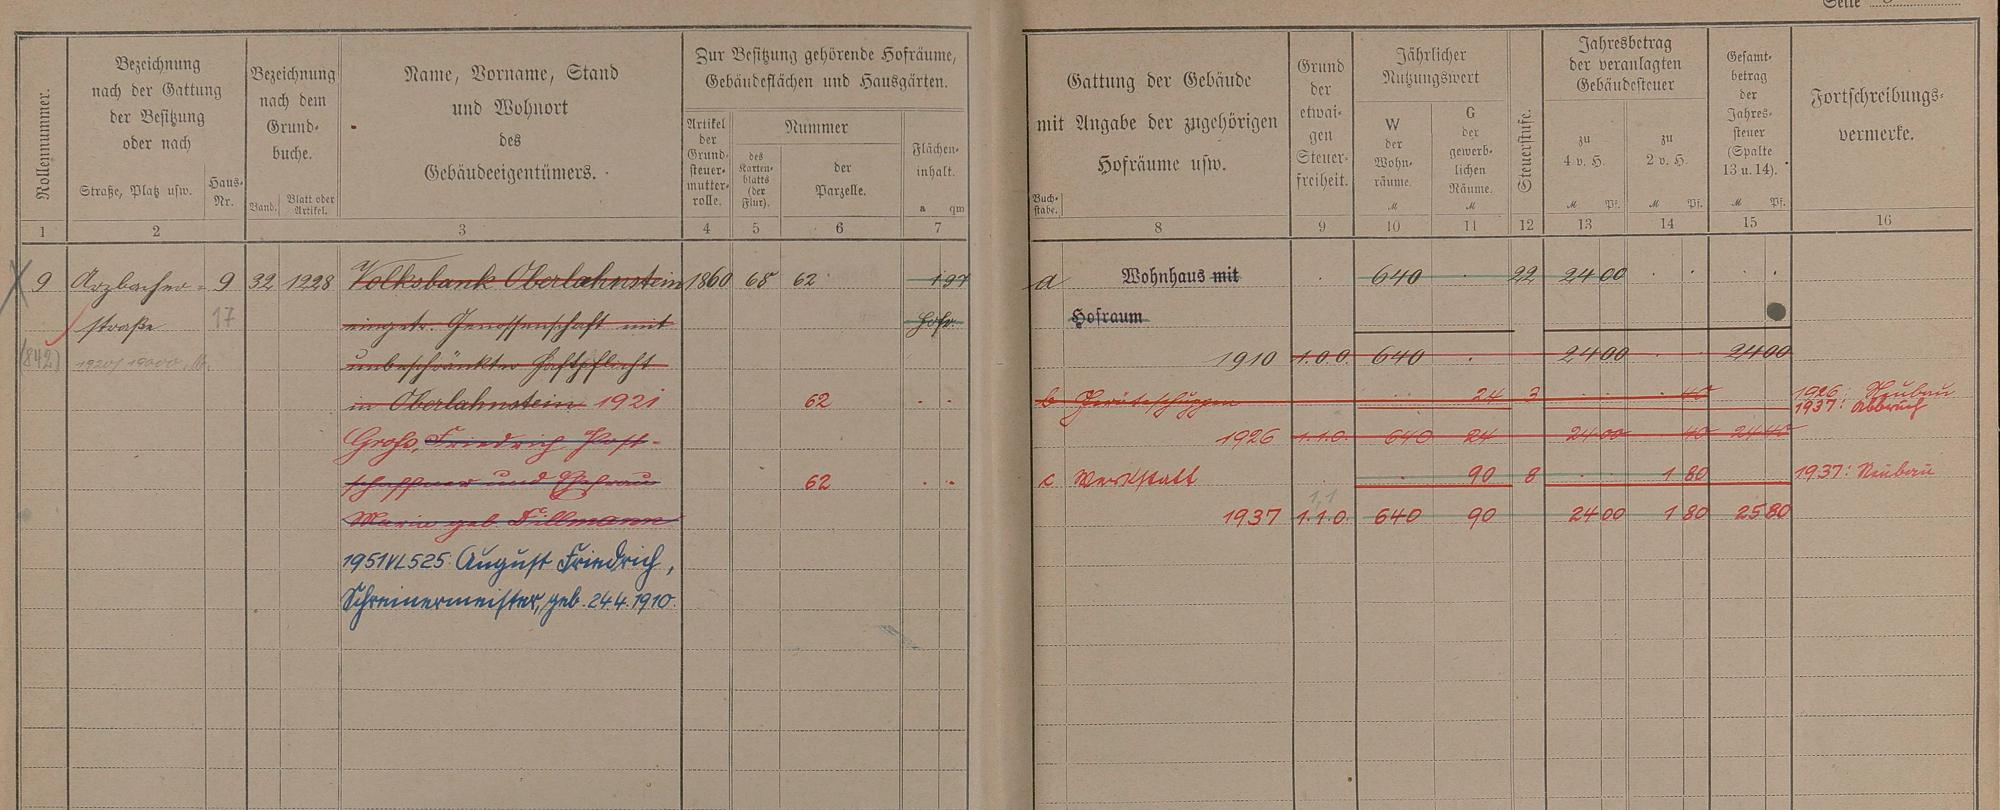 Seite
Rollennummer.
Bezeichnung
nach der Gattung
der Besitzung
oder nach
Straße, Platz usw.
Haus-
Nr.
Bezeichnung
nach dem
Grund-
buche.
Band.
Blatt oder
Artikel.
Name, Vorname, Stand
und Wohnort
des
Gebäudeeigentümers.
Zur Besitzung gehörende Hofräume,
Gebäudeflächen und Hausgärten.
Artikel
der
Grund-
steuer-
mutter-
rolle.
Nummer
des
Karten-
blatts
(der
Flur).
der
Parzelle.
Flächen-
inhalt.
a qm
Gattung der Gebäude
mit Angabe der zugehörigen
Hofräume usw.
Buch-
stabe.
Grund
der
etwai-
gen
Steuer-
freiheit.
Jährlicher
Nutzungswert
W
der
Wohn-
räume.
M
G
der
gewerb-
lichen
Räume.
M
Steuerstufe.
Jahresbetrag
der veranlagten
Gebäudesteuer
zu
4 v. H.
M Pf.
zu
2 v. H.
M Pf.
Gesamt-
betrag
der
Jahres-
steuer
(Spalte
13 u. 14).
M Pf.
Fortschreibungs-
vermerke.
1 2 3 4 5 6 7 8 9 10 11 12 13 14 15 16
9 Arzbacher- 9 32 1228 Volksbank Oberlahnstein 1860 68 62 197 a Wohnhaus mit 640 22 24 00
straße 17 eingetr. Genossenschaft mit Hofr. Hofraum
(842) unbeschränkter Haftpflicht 1910 1.0.0. 640 24 00 24 00
in Oberlahnstein 1921 62 b Geräteschuppen 24 3 40 1926: Neubau
1937: Abbruch
Grohs, Friedrich Post- 1926 1.1.0. 640 24 24 00 40 24 40
schaffner und Ehefrau 62 c Werkstatt 90 8 1 80 1937: Neubau
1.1
Maria geb. Dillmann 1937 1.1.0. 640 90 24 00 1 80 25 80
1951 VL 525: August Friedrich,
Schreinermeister, geb. 24.4.1910.